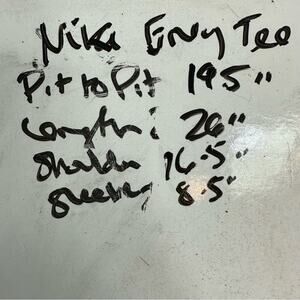 Nike Grey Tee
Pit to Pit 19.5"
Length: 26"
Shoulder 16.5"
Sleeve 8.5"